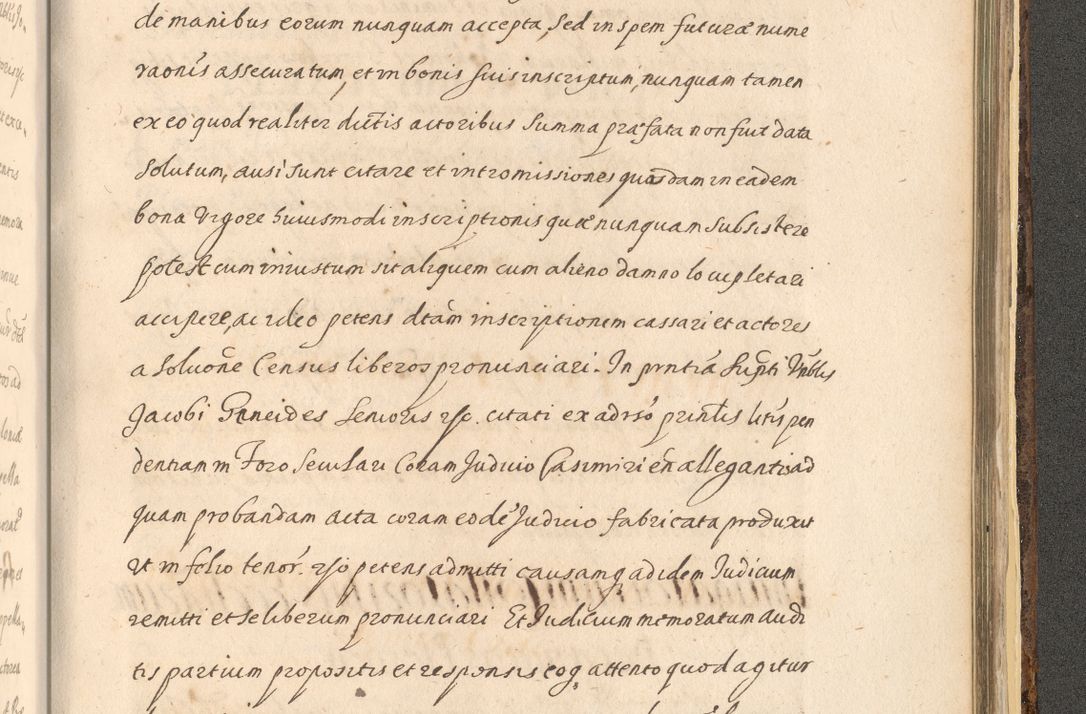 de manibus eorum nunquam accepta, sed in spem futuræ nume
rãonis assecuratum, et in bonis suis inscriptum, nunquam tamen
ex eo quod realiter dictis actoribus summa præfata non fuit data
solutum, ausi sunt citare et intromissiones quasdam in eadem
bona vigore huiusmodi inscriptionis quæ nunquam subsistere
potest cum iniustum sit aliquem cum alieno damno locupletari
accipere, ac ideo petens dtãm inscriptionem cassari et actores
a soluõne Census liberos pronunciari. In pñtia Supti Vnblis
Jacobi Gnneides senioris etc. citati ex adrso printis litis pen
dentiam in Foro Seculari Coram Judicio Casimirien allegantis ad
quam probandam acta coram eode Judicio fabricata produxit
ut in folio tenor. etc petens admitti causamq ad idem Judicium
remitti et se liberum pronunciari Et Judicium memoratum audi
tis partium propositis et responsis eoq attento quod agitur